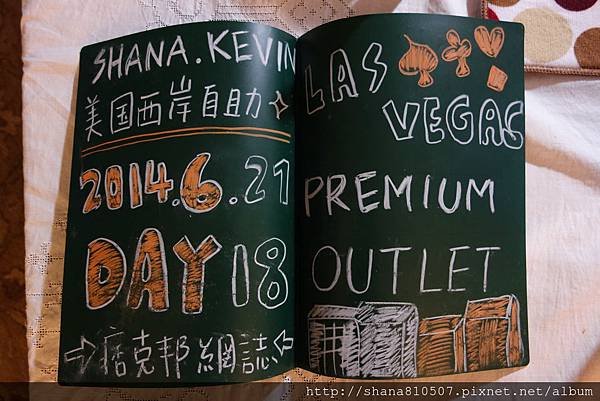 SHANA.KEVIN
美国西岸自助
2014.6.21
DAY 18
⇨痞克邦網誌⇦
LAS
VEGAS
PREMIUM
OUTLET
http://shana810507.pixnet.net/album